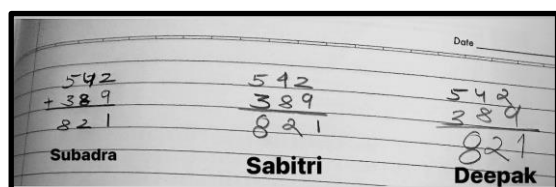 Date
542
+ 389
821
Subadra
542
389
821
Sabitri
542
389
821
Deepak